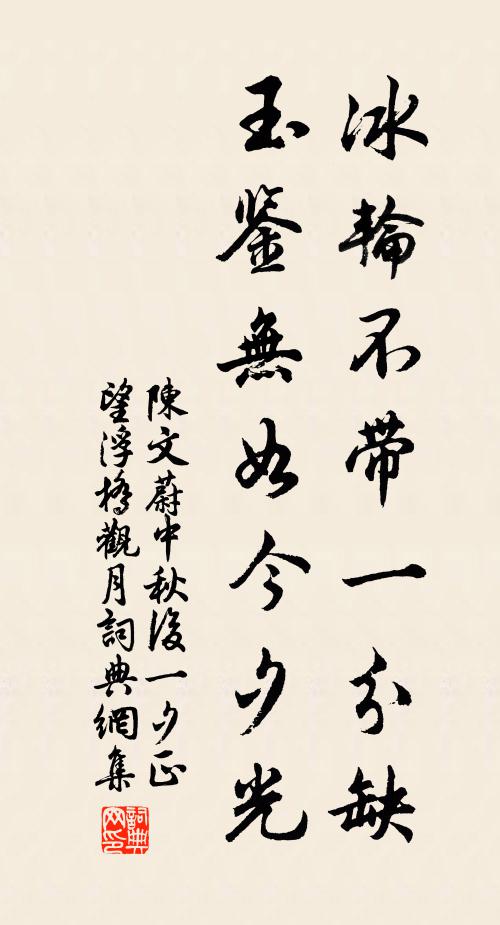 冰輪不帶一分缺
玉鉴無如今夕光
陳文蔚中秋後一夕正
望浮橋觀月詞典網集
詞典网印